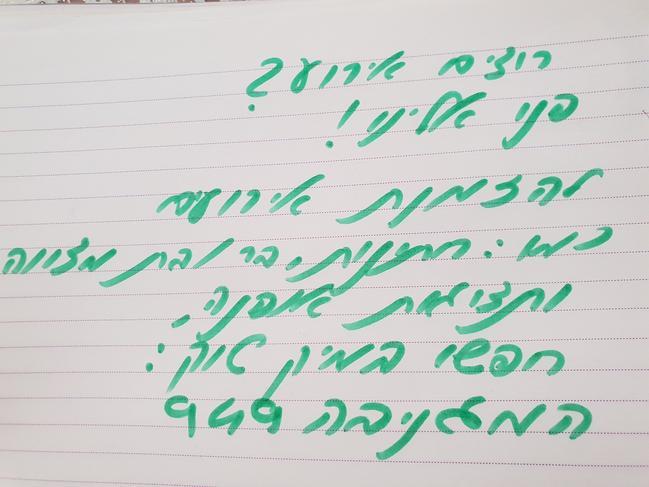 רוצים אירוע?
פני אלינו!
להזמנת אירועים
כמו: חתונות, בר ובת מצווה
ותצוגות אופנה,
חפשו במיק טוק:
המגניבה 949